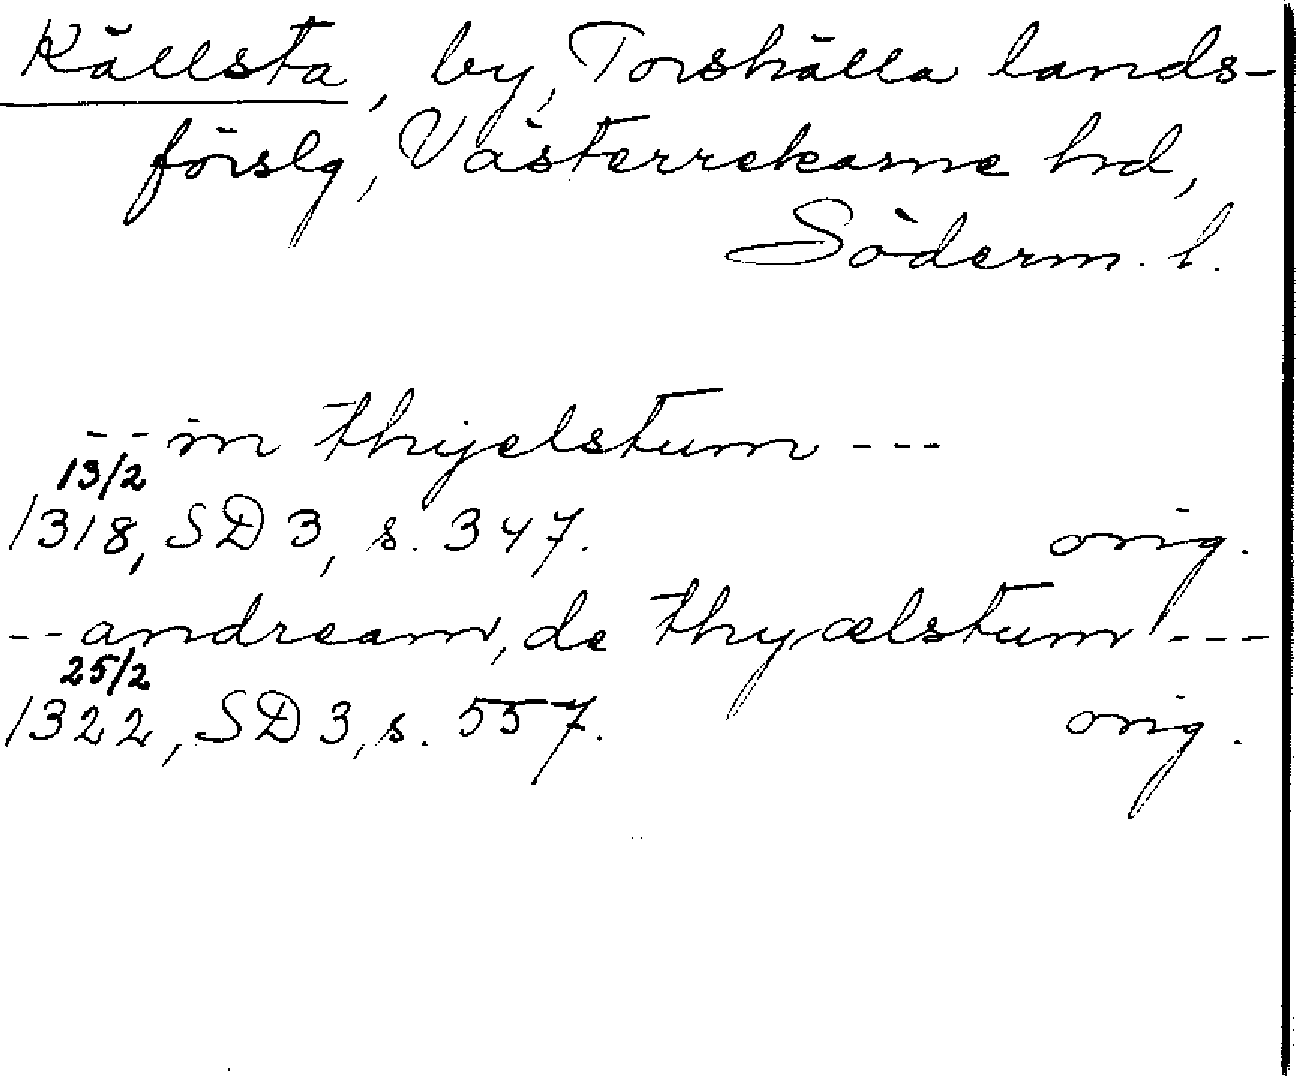 Källsta, by, Torshälla lands-
förslg, Västerrekarne hd,
Söderm. l.
-- in thyelstum ---
13/2
1318, SD 3, s. 347. orig.
-- andream, de thyælstum ---
25/2
1322, SD 3, s. 557. orig.